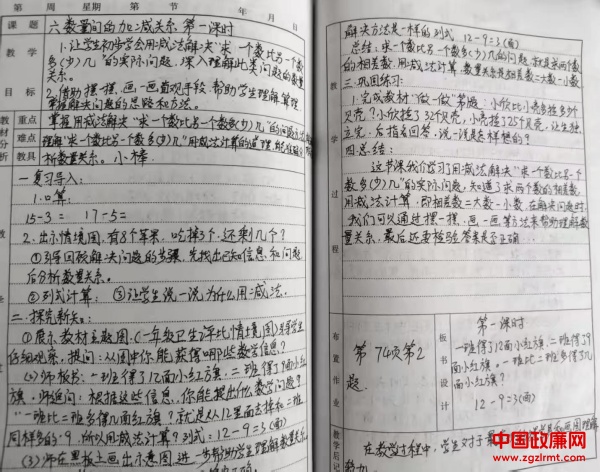 第 周 星期 年 月 日
课题 六数量间的加减关系 第一课时
教学目标
1.让学生初步学会用减法解决"求一个数比另一个数
多(少)几"的实际问题,深入理解此类问题的数量
关系。
2.借助摆一摆、画一画直观手段,帮助学生理解算理
掌握解决问题的思路和方法。
教材分析
重点 掌握用减法解决"求一个数比另一个数多(少)几"的问题
难点 理解"求一个数比另一个数多(少)几"用减法计算的道理
教具 析数量关系。小棒
一复习导入:
1.口算:
15-3= 17-5=
2.出示情境图,有8个苹果,吃掉3个,还剩几个?
①引导回顾解决问题的步骤,先找出已知信息和问题
后分析数量关系。
②列式计算; ③让学生说一说为什么用减法.
二.探究新知:
①展示教材主题图.(一年级卫生评比情境图)引导学生
仔细观察,提问:从图中你能获得哪些数学信息?
(2)师板书:一班得了12面小红旗,二班得了9面小红
旗,师追问:根据这些信息,你能提出什么数学问题?
"一班比二班多得几面红旗?就是从12里面去掉和二班
同样多的9,所以用减法计算?列式:12-9=3(面)
(3)师在黑板上画出示意图,进一步帮助学生理解数量关系
教学过程
解决方法是一样的列式 12-9=3(面)
总结:求一个数比另一个数多(少)几的问题,就是求两个数
的相差数,用减法计算,数量关系是相差数=大数-小数
三.巩固练习:
1.完成教材"做一做"第1题:小欣比小亮多捡多少个
贝壳?小欣捡了32个贝壳,小亮捡了25个贝壳,让学生独
立完,后指名回答,说一说是怎样想的?
四.总结:
这节课我们学习了用减法解决"求一个数比另一个
数多(少)几"的实际问题,知道了求两个数的相差数
用减法计算,即相差数=大数-小数,在解决问题时,
我们可以通过摆一摆、画一画等方法来帮助理解数
量关系,最后还要检验答案是否正确.
布置作业
第74页第2
题.
板书设计
第一课时
一班得了12面小红旗,二班得了9
面小红旗。一班比二班多得了几
面小红旗?
12-9=3(面)
教学后记
在教学过程中,学生对于
中国政廉网
www.zgzlrmt.com